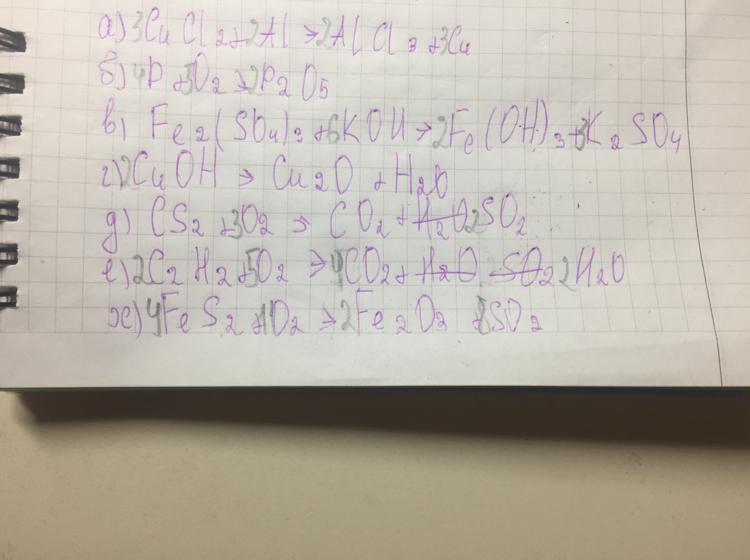 а) 3CuCl2 + 2Al → 2AlCl3 + 3Cu
б) 4P + 5O2 → 2P2O5
в) Fe2(SO4)3 + 6KOH → 2Fe(OH)3 + 3K2SO4
г) 2CuOH → Cu2O + H2O
д) CS2 + 3O2 → CO2 + H2O 2SO2
е) 2C2H2 + 5O2 → 4CO2 + H2O SO2 2H2O
ж) 4FeS2 + 11O2 → 2Fe2O3 + 8SO2